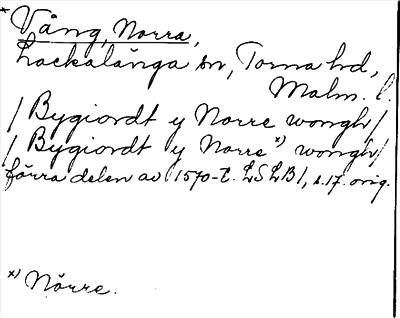 x Vång, Norra,
Lackalänga sn, Torna hd,
Malm. l.
/ Bygiordt y Norre wongh /
/ Bygiordt y Norre x) wongh /
förra delen av 1570-t. LSLB 1, s. 17. orig.
x) Nörre.